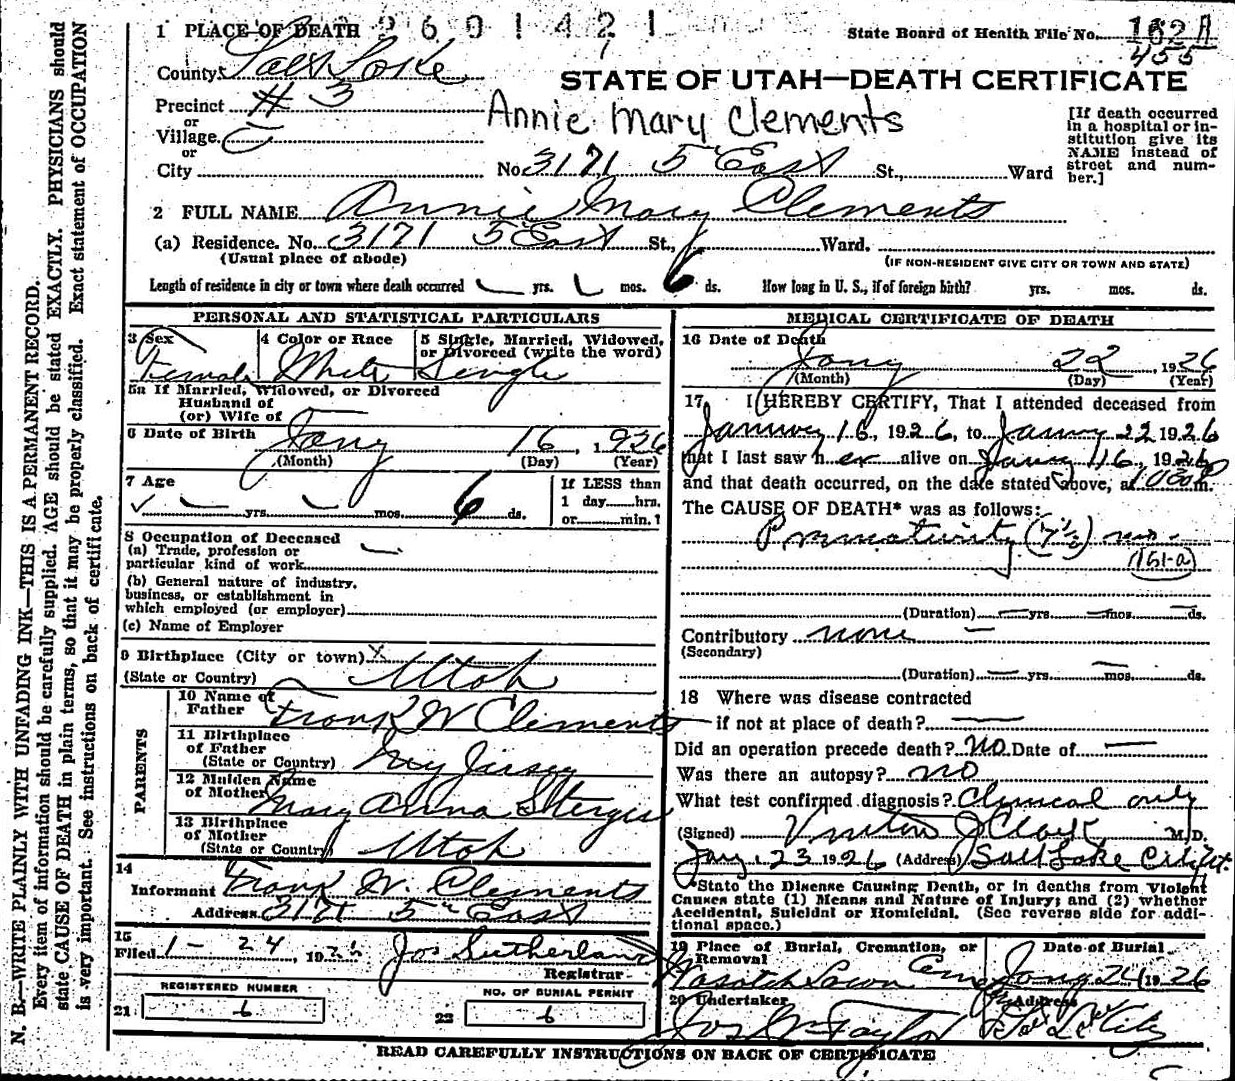 1 PLACE OF DEATH 2601421
State Board of Health File No. 162A
455
County Salt Lake
STATE OF UTAH—DEATH CERTIFICATE
Precinct # 3
or
Annie Mary Clements
Village
or
City No. 3171 5" East St., Ward
[If death occurred
in a hospital or in-
stitution give its
NAME instead of
street and num-
ber.]
2 FULL NAME Annie Mary Clements
(a) Residence. No. 3171 5 East St., Ward.
(Usual place of abode) (IF NON-RESIDENT GIVE CITY OR TOWN AND STATE)
Length of residence in city or town where death occurred — yrs. mos. 6 ds. How long in U. S., if of foreign birth? yrs. mos. ds.
PERSONAL AND STATISTICAL PARTICULARS
3 Sex 4 Color or Race 5 Single, Married, Widowed,
or Divorced (write the word)
Female White Single
5a If Married, Widowed, or Divorced
Husband of
(or) Wife of
6 Date of Birth Jany 16, 1926
(Month) (Day) (Year)
7 Age If LESS than
yrs. mos. 6 ds. 1 day hrs.
or min. ?
8 Occupation of Deceased
(a) Trade, profession or
particular kind of work
(b) General nature of industry.
business, or establishment in
which employed (or employer)
(c) Name of Employer
9 Birthplace (City or town) X
(State or Country) Utah
PARENTS
10 Name of
Father Frank W Clements
11 Birthplace
of Father
(State or Country) New Jersey
12 Maiden Name
of Mother Mary Anna Sturges
13 Birthplace
of Mother
(State or Country) Utah
14
Informant Frank W. Clements
Address 3171 5" East
15
Filed 1-24, 19 Jos Sutherland
Registrar
REGISTERED NUMBER NO. OF BURIAL PERMIT
21 6 22 6
MEDICAL CERTIFICATE OF DEATH
16 Date of Death
Jany 22, 1926
(Month) (Day) (Year)
17 I HEREBY CERTIFY, That I attended deceased from
January 16, 1926, to Jany 22 1926
that I last saw her alive on Jany 16, 1926
and that death occurred, on the date stated above, at m.
The CAUSE OF DEATH* was as follows:
Prematurity (7½) mo-
(161-a)
(Duration) — yrs. — mos. — ds.
Contributory none —
(Secondary)
(Duration) — yrs. — mos. ds.
18 Where was disease contracted
if not at place of death? —
Did an operation precede death? No Date of —
Was there an autopsy? no
What test confirmed diagnosis? Clinical only
(Signed) M. D.
Jany 23 1926 (Address) Salt Lake City Ut.
*State the Disease Causing Death, or in deaths from Violent
Causes state (1) Means and Nature of Injury; and (2) whether
Accidental, Suicidal or Homicidal. (See reverse side for addi-
tional space.)
19 Place of Burial, Cremation, or Date of Burial
Removal
Wasatch Lawn Cem Jany 24 1926
20 Undertaker Address
Jos Wm Taylor Salt Lake City
READ CAREFULLY INSTRUCTIONS ON BACK OF CERTIFICATE
N. B.—WRITE PLAINLY WITH UNFADING INK—THIS IS A PERMANENT RECORD.
Every item of information should be carefully supplied. AGE should be stated EXACTLY. PHYSICIANS should
state CAUSE OF DEATH in plain terms, so that it may be properly classified. Exact statement of OCCUPATION
is very important. See instructions on back of certificate.